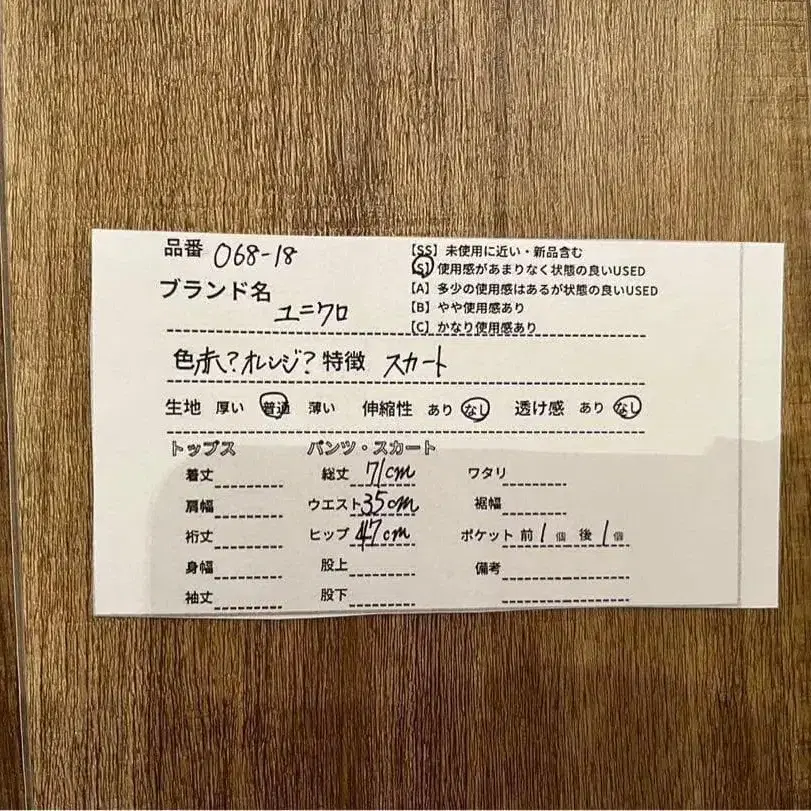 品番 068-18
ブランド名 ユニクロ
【SS】未使用に近い・新品含む
【S】使用感があまりなく状態の良いUSED
【A】多少の使用感はあるが状態の良いUSED
【B】やや使用感あり
【C】かなり使用感あり
色 赤?オレンジ? 特徴 スカート
生地 厚い 普通 薄い 伸縮性 あり なし 透け感 あり なし
トップス パンツ・スカート
着丈 総丈 71cm ワタリ
肩幅 ウエスト 35cm 裾幅
裄丈 ヒップ 47cm ポケット 前 1 個 後 1 個
身幅 股上 備考
袖丈 股下